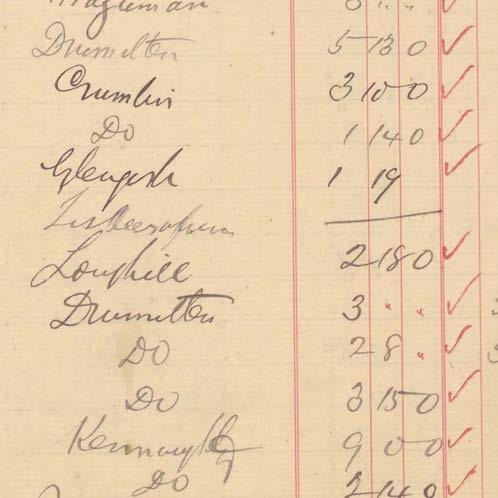 Drumilten 5 13 0 ✓
Crumlin 3 10 0 ✓
Do 1 14 0 ✓
Glengesh 1 19 ✓
Loughill 2 18 0 ✓
Drumilten 3 " " ✓
Do 2 8 " ✓
Do 3 15 0 ✓
9 0 0 ✓
Do 2 14 0 ✓